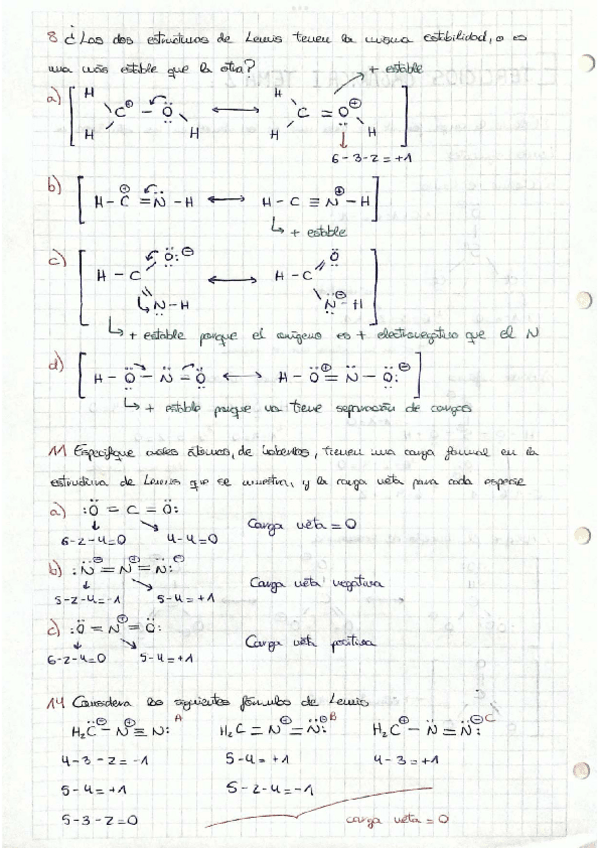 8 ¿Las dos estructuras de Lewis tienen la misma estabilidad, o es
una más estable que la otra?
+ estable
a) [H H C⊕ – Ö – H ⟷ H H C = O⊕ – H]
6-3-2=+1
b) [H – C⊕ = N̈ – H ⟷ H – C ≡ N⊕ – H]
↳ + estable
c) [H – C – Ö:⊖ = N̈ – H ⟷ H – C = Ö – N̈⊖ – H]
↳ + estable porque el oxígeno es + electronegativo que el N
d) [H – Ö – N̈ = Ö ⟷ H – Ö⊕ = N̈ – Ö:⊖]
↳ + estable porque no tiene separación de cargas
11 Especifique cuales átomos, de haberlos, tienen una carga formal en la
estructura de Lewis que se muestra, y la carga neta para cada especie
a) :Ö = C = Ö: Carga neta = 0
6-2-4=0 4-4=0
b) :N̈⊖ = N⊕ = N̈:⊖ Carga neta negativa
5-2-4=-1 5-4=+1
c) :Ö = N⊕ = Ö: Carga neta positiva
6-2-4=0 5-4=+1
14 Considera las siguientes fórmulas de Lewis
H₂C̈⊖ – N⊕ ≡ N: A H₂C = N⊕ = N̈:⊖ B H₂C⊕ – N̈ = N̈:⊖ C
4-3-2=-1 5-4=+1 4-3=+1
5-4=+1 5-2-4=-1
5-3-2=0 carga neta = 0